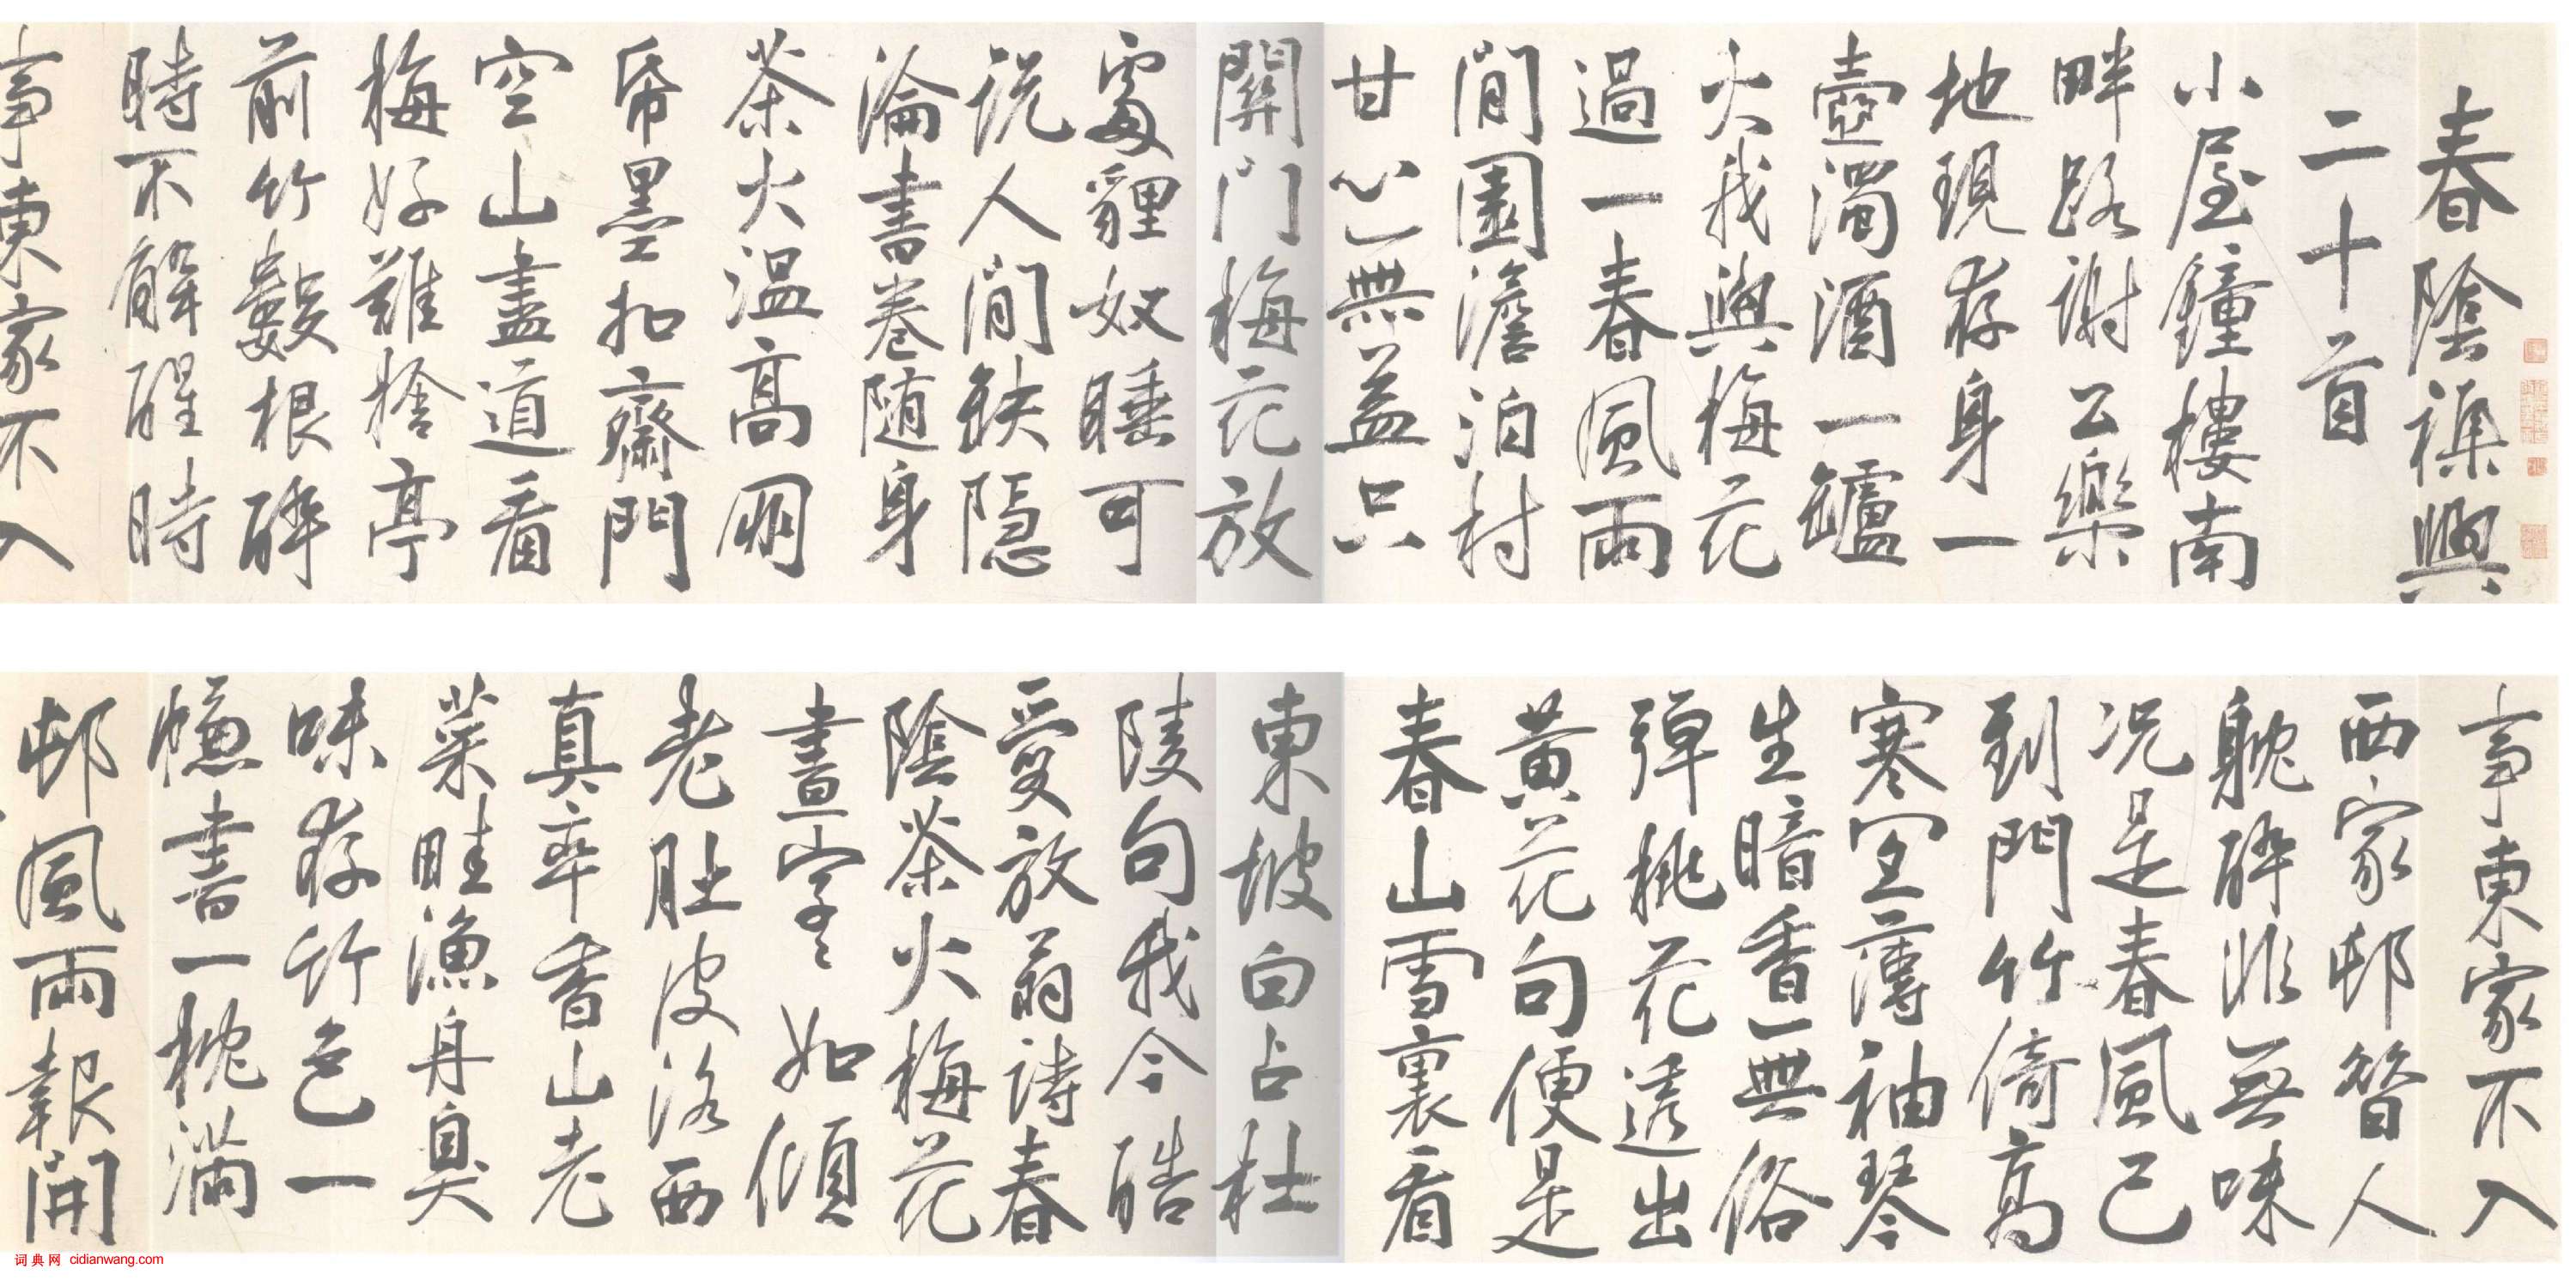 春陰襍興
二十首
小屋鐘樓南
畔路謝公樂
地現存身一
壺濁酒一罏
火我與梅花
過一春風雨
閒園澹泊村
甘心無益只
關門梅花放
處貍奴睡可
說人間缺隱
淪書卷随身
茶火溫高岡
帋墨扣齋門
空山盡道看
梅好難捨亭
前竹數根醉
時不解醒時
事東家不入
事東家不入
西家邨智人
躭醉非無味
況是春風已
到門竹倚高
寒空薄袖琴
生暗香一無俗
彈桃花透出
黃花句便是
春山雪裏看
東坡白占杜
陵句我今酷
愛放翁詩春
陰茶火梅花
畫字〻如傾
老肚皮洛西
真率香山老
菜畦漁舟臭
味存竹色一
㡘書一枕滿
邨風雨報開
词典网 cidianwang.com